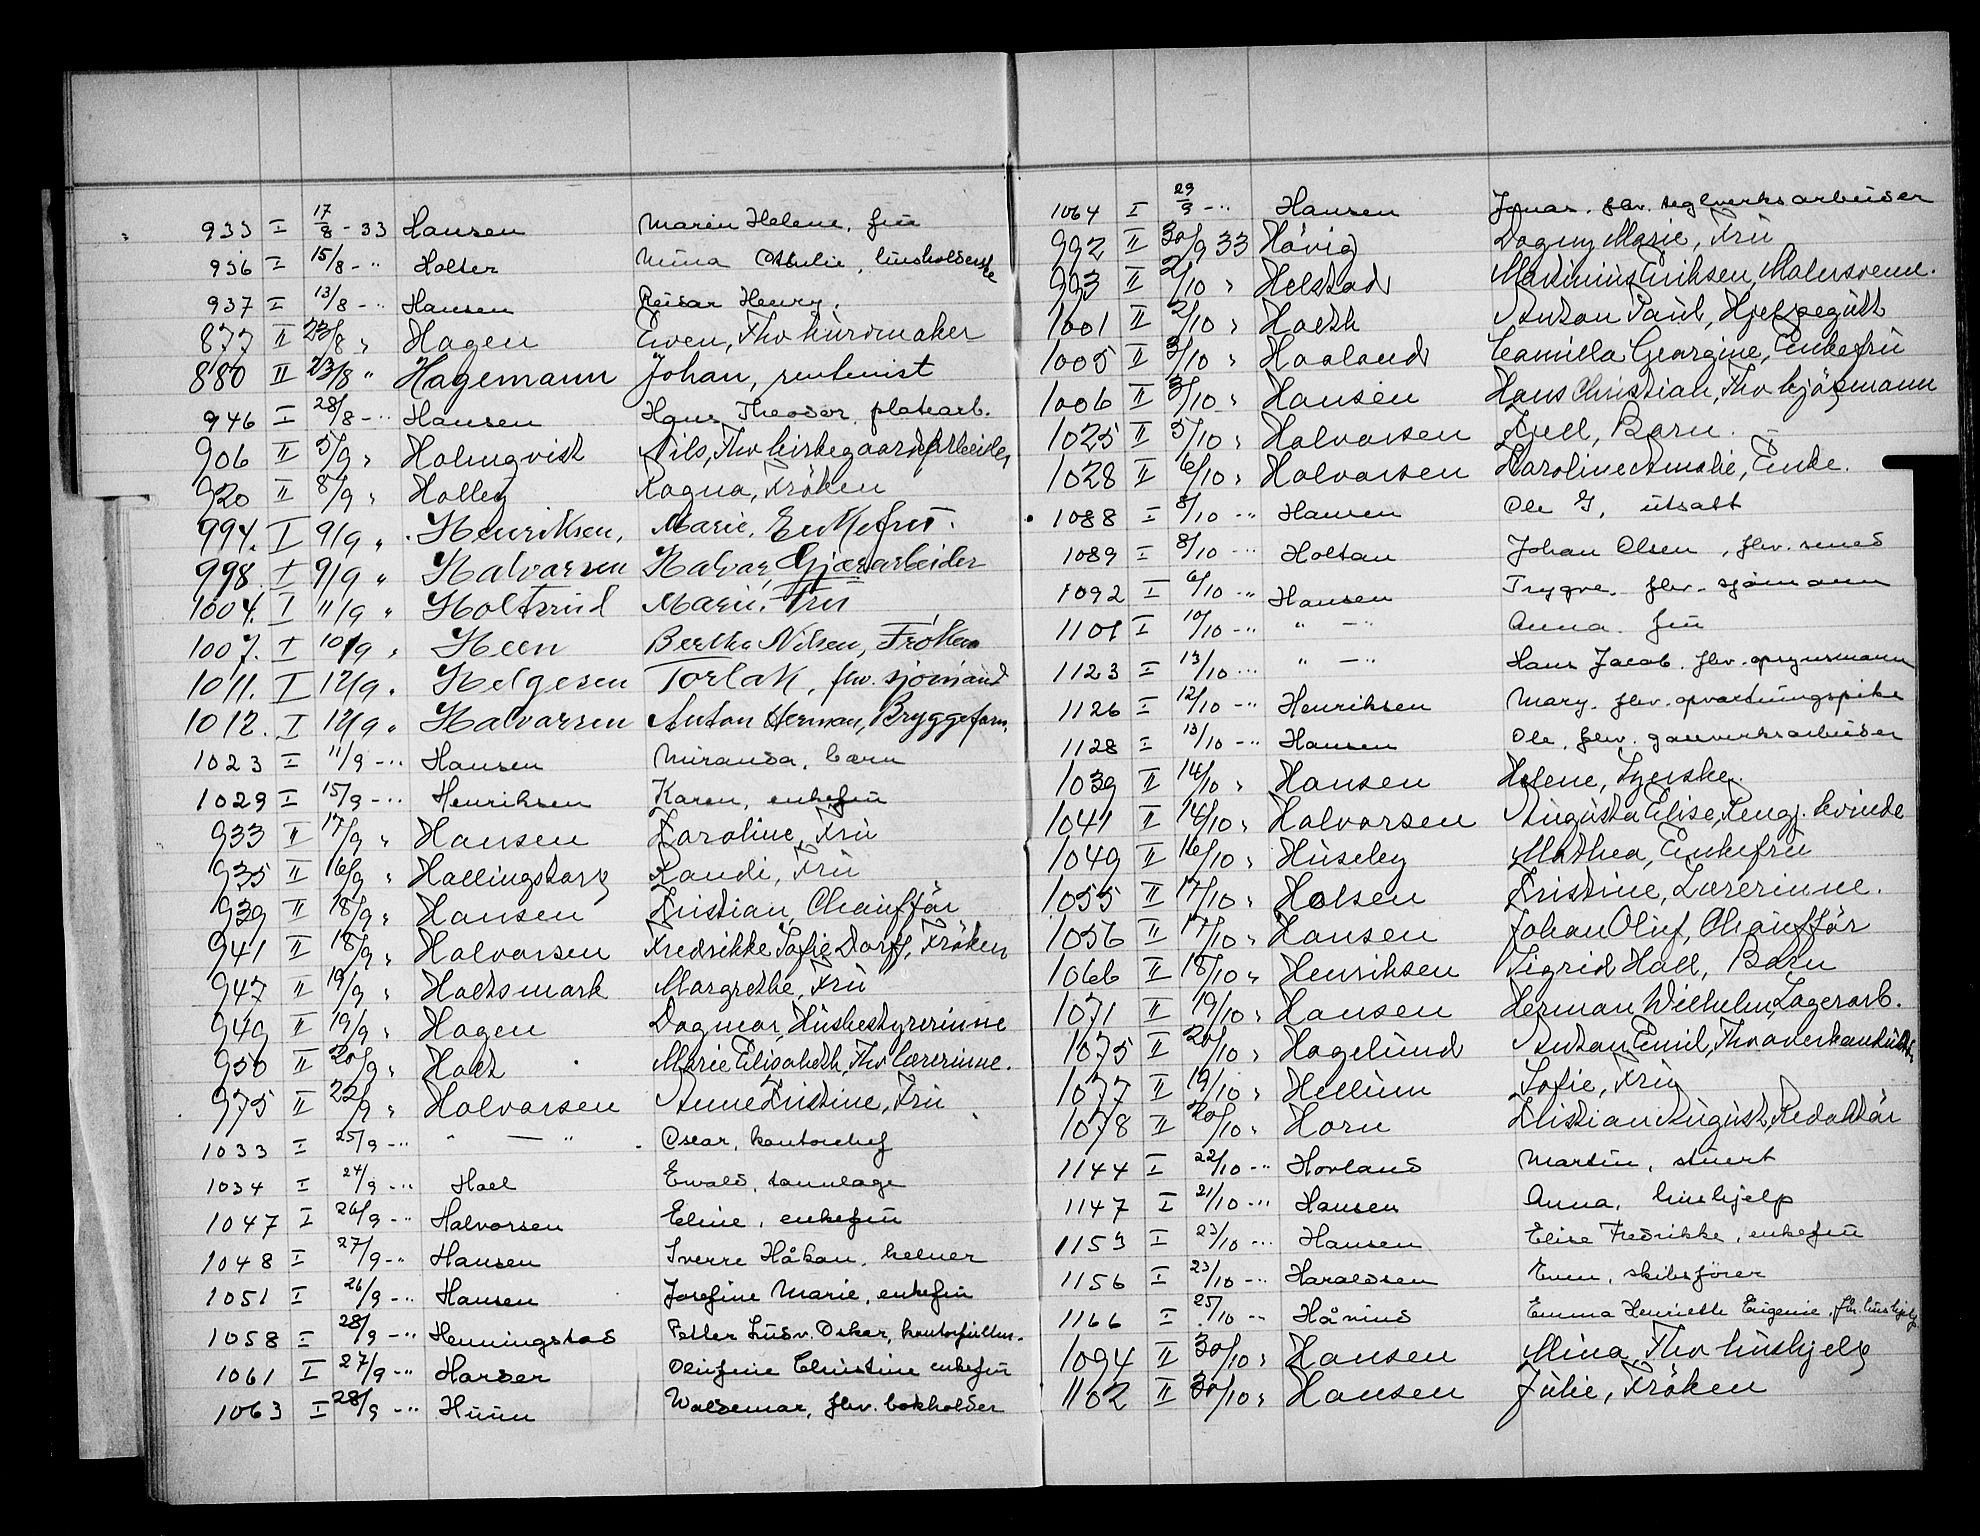 933 I 17/8 - 33 Hansen Maren Helene, fru
936 I 15/8 - " Holter Mina Othilie, husholderske
937 I 13/8 - " Hansen Reisar Henry.
877 II 23/8 " Hagen Even, Fhv buromaker
880 II 23/8 " Hagemann Johan, rentenist
946 I 28/8 - " Hansen Hans Theodor, platearb.
906 II 5/9 " Holmqvist Nils, Fhv kirkegaardsarbeider
920 II 8/9 " Holley Ragna, Fröken
994. I 9/9 " Henriksen, Marie, Enkefru.
998. I 9/9 " Halvarsen Halvar Gjærarbeider
1004. I 11/9 " Holtsrud Marie, Fru
1007. I 10/9 " Heen Berthe Nilsen, Frøken
1011. I 12/9 " Helgesen Torlak, fhv. sjömand
1012. I 12/9 " Halvarsen Anton Herman, Bryggeform.
1023 I 11/9 - " Hansen Miranda, barn
1029 I 15/9 - " Henriksen Karen, enkefru
933 II 17/9 " Hansen Karoline, Fru
935 II 16/9 " Hallingstorp Randi, Fru
939 II 18/9 " Hansen Kristian, Chaufför
941 II 18/9 " Halvorsen Fredrikke Sofie Dorff, Fröken
947 II 19/9 " Holtsmark Margrethe, Fru
949 II 19/9 " Hagen Dagmar, Husbestyrerinne
950 II 20/9 " Holt Marie Elisabeth, Fhv lærerinne.
975 II 22/9 " Halvorsen Anne Kristine, Fru
1033 I 25/9 - " " — " Oscar, kontorchef
1034 I 24/9 - " Hall Ewald, tannlæge
1047 I 26/9 - " Halvorsen Eline, enkefru
1048 I 27/9 - " Hansen Sverre Håkan, kelner
1051 I 26/9 - " Hansen Josefine Marie, enkefru
1058 I 28/9 - " Henningstad Petter Ludv. Oskar, kontorfullm.
1061 I 27/9 - " Harder Olufine Christine enkefru
1063 I 28/9 - " Huun Waldemar, fhv. bokholder
1064 I 29/9 - " Hansen fhv. teglverksarbeider
992 II 30/9 33 Hövig Dagny Marie, Fru
993 II 2/10 " Helstad Maximius Eriksen, Malersvenn.
1001 II 2/10 " Holth Anton Paul, Hjelpegutt
1005 II 3/10 " Haaland Camilla Georgine, Enkefru
1006 II 3/10 " Hansen Hans Christian, Fhv kjögemann
1025 II 5/10 " Halvorsen Kjell, Barn.
1028 II 6/10 " Halvorsen Karoline Amalie, Enke.
1088 I 8/10 - " Hansen Ole G, utsatt
1089 I 8/10 - " Holtan Johan Olsen, fhv. smed
1092 I 6/10 - " Hansen Trygve, fhv. sjömann
1101 I 10/10 - " " — " Anna, fru
1123 I 13/10 - " " — " Hans Jacob, fhv. opsynsmann
1126 I 12/10 - " Henriksen Mary, fhv. opvartningspike
1128 I 13/10 - " Hansen Ole, fhv. gassverksarbeider
1039 II 14/10 " Hansen Helene, Syerske.
1041 II 14/10 " Halvorsen Augusta Elise, Rengj. kvinde
1049 II 16/10 " Huseby Mathea, Enkefru
1055 II 17/10 " Holsen Kristine, Lærerinne.
1056 II 17/10 " Hansen Johan Oluf, Chaufför
1066 II 18/10 " Henriksen Sigrid Hall, Barn
1071 II 19/10 " Hansen Herman Wilhelm, Lagerarb.
1075 II 20/10 " Hagelund Anton Emil, Fhv
1077 II 19/10 " Hellum Sofie, Fru
1078 II 20/10 " Horn Kristian August, Redaktör
1144 I 22/10 - " Hovland Martin, stuert
1147 I 21/10 - " Hansen Anna, hushjelp
1153 I 23/10 - " Hansen Elise Fredrikke, enkefru
1156 I 23/10 - " Haraldsen Even, skibsfører
1166 I 25/10 - " Emma Henriette Eugenie, fhv. hushjelp
1094 II 30/10 " Hansen Mina, Fhv hushjelp
1102 II 30/10 " Hansen Julie, Fröken